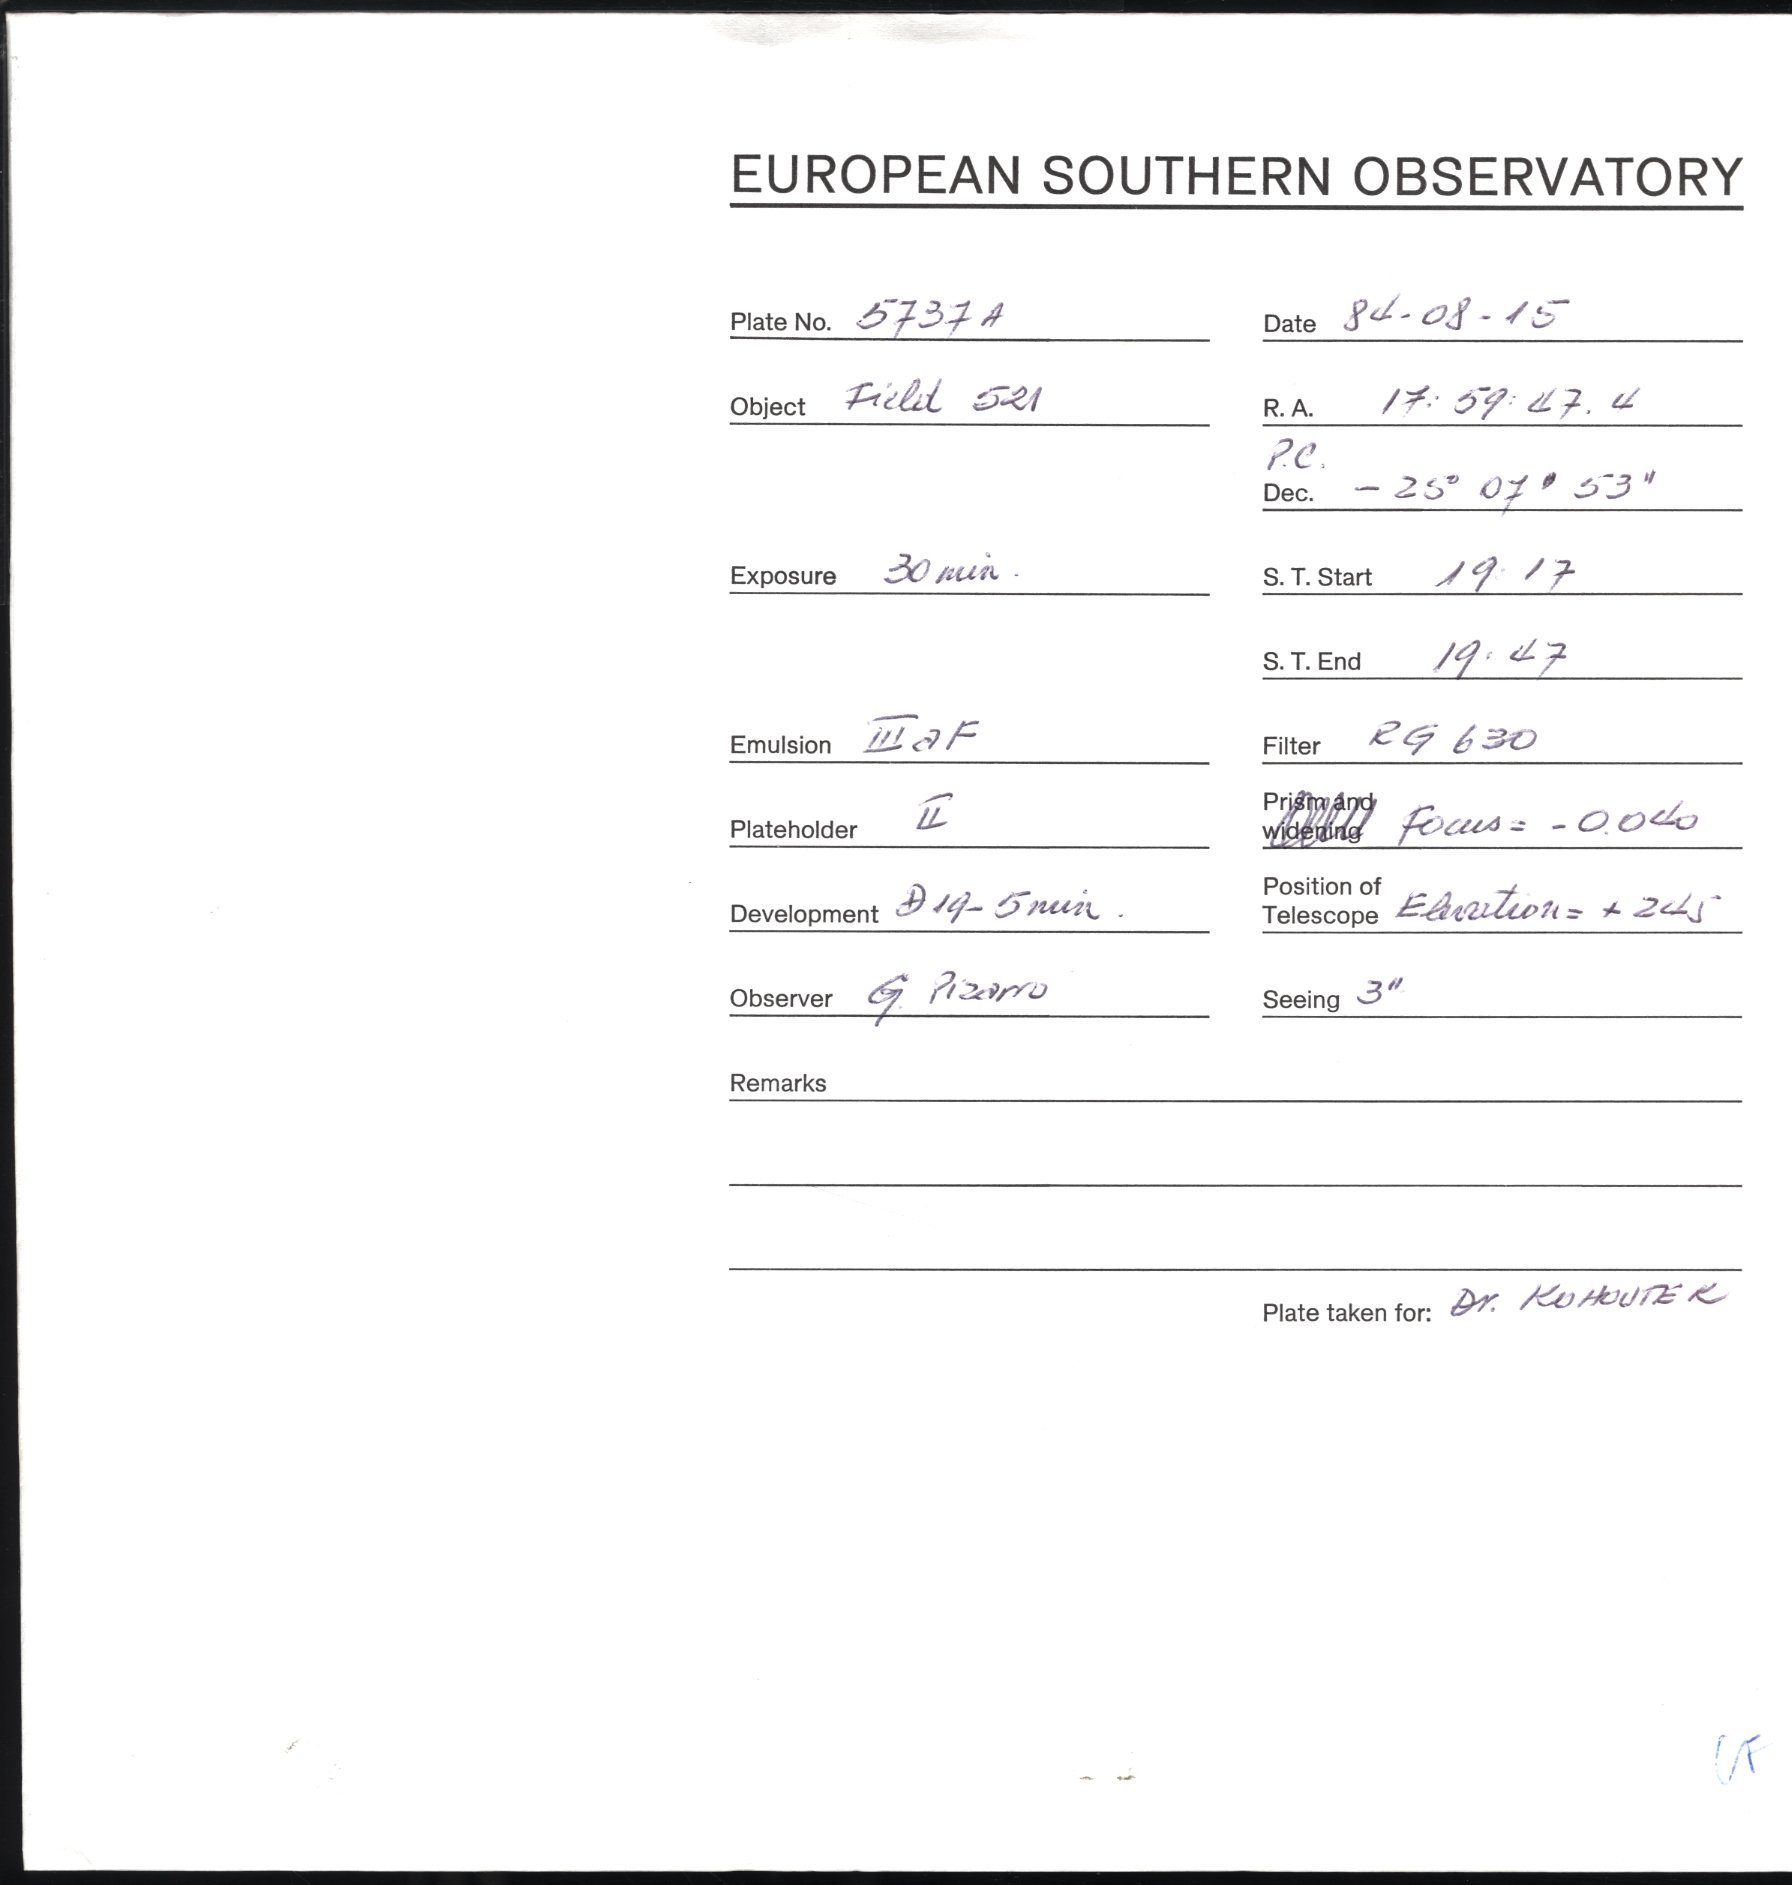 EUROPEAN SOUTHERN OBSERVATORY
Plate No. 5737A
Date 84-08-15
Object Field 521
R. A. 17: 59: 47. 4
P.C.
Dec. - 25° 07' 53"
Exposure 30 min.
S. T. Start 19: 17
S. T. End 19: 47
Emulsion III a F
Filter RG 630
Plateholder II
Prism and
widening Focus = - 0.040
Development D19- 5 min.
Position of
Telescope Elevation = + 245
Observer G. Pizarro
Seeing 3"
Remarks
Plate taken for: Dr. KOHOUTEK